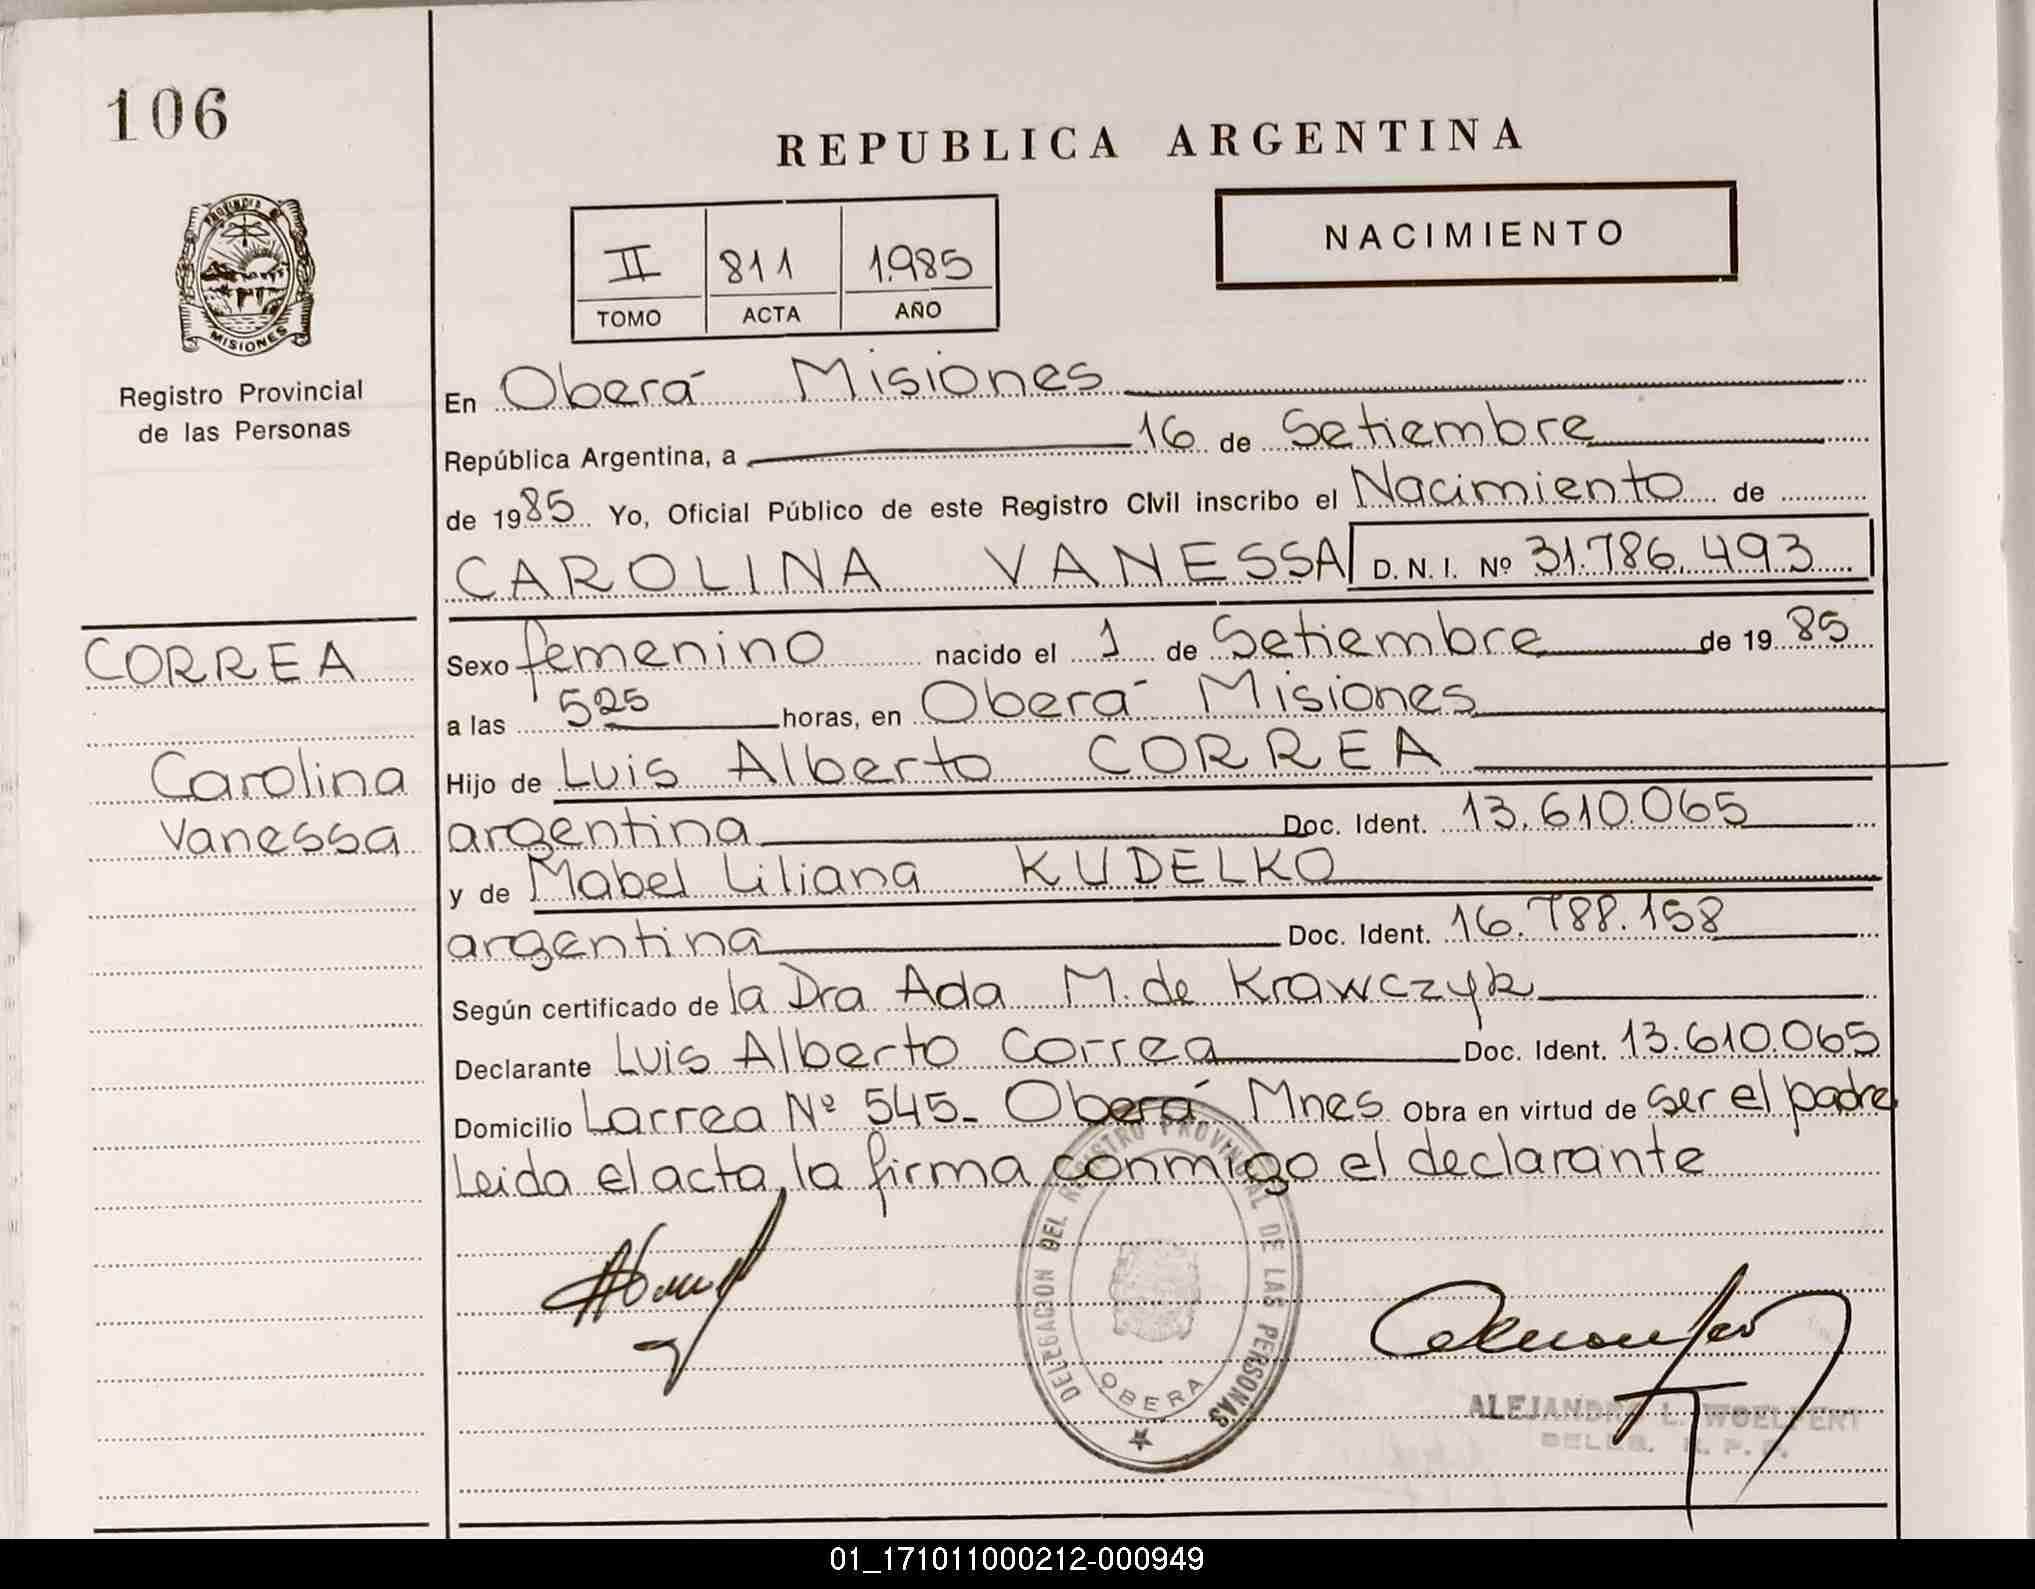 106
REPUBLICA ARGENTINA
PROVINCIA DE
MISIONES
Registro Provincial
de las Personas
II 811 1.985
TOMO ACTA AÑO
NACIMIENTO
En Oberá Misiones
República Argentina, a 16 de Setiembre
de 1985 Yo, Oficial Público de este Registro Civil inscribo el Nacimiento de
CAROLINA VANESSA D. N. I. Nº 31.786.493
CORREA
Carolina
Vanessa
Sexo femenino nacido el 1 de Setiembre de 1985
a las 525 horas, en Oberá Misiones
Hijo de Luis Alberto CORREA
argentina Doc. Ident. 13.610.065
y de Mabel Liliana KUDELKO
argentina Doc. Ident. 16.788.158
Según certificado de la Dra Ada M. de Krawczyk
Declarante Luis Alberto Correa Doc. Ident. 13.610.065
Domicilio Larrea Nº 545- Oberá Mnes Obra en virtud de ser el padre
Leida el acta, la firma conmigo el declarante
DELEGACION DEL REGISTRO PROVINCIAL DE LAS PERSONAS
OBERA
ALEJANDRO L. WOELFERT
01_171011000212-000949